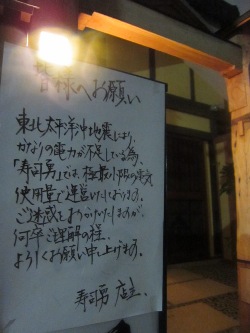 皆様へお願い
東北太平洋沖地震により、
かなりの電力が不足している為、
「寿司勇」では、極最小限の電気
使用量で運営いたしております。
ご迷惑をおかけいたしますが、
何卒ご理解の程、
よろしくお願い申し上げます。
寿司勇 店主、